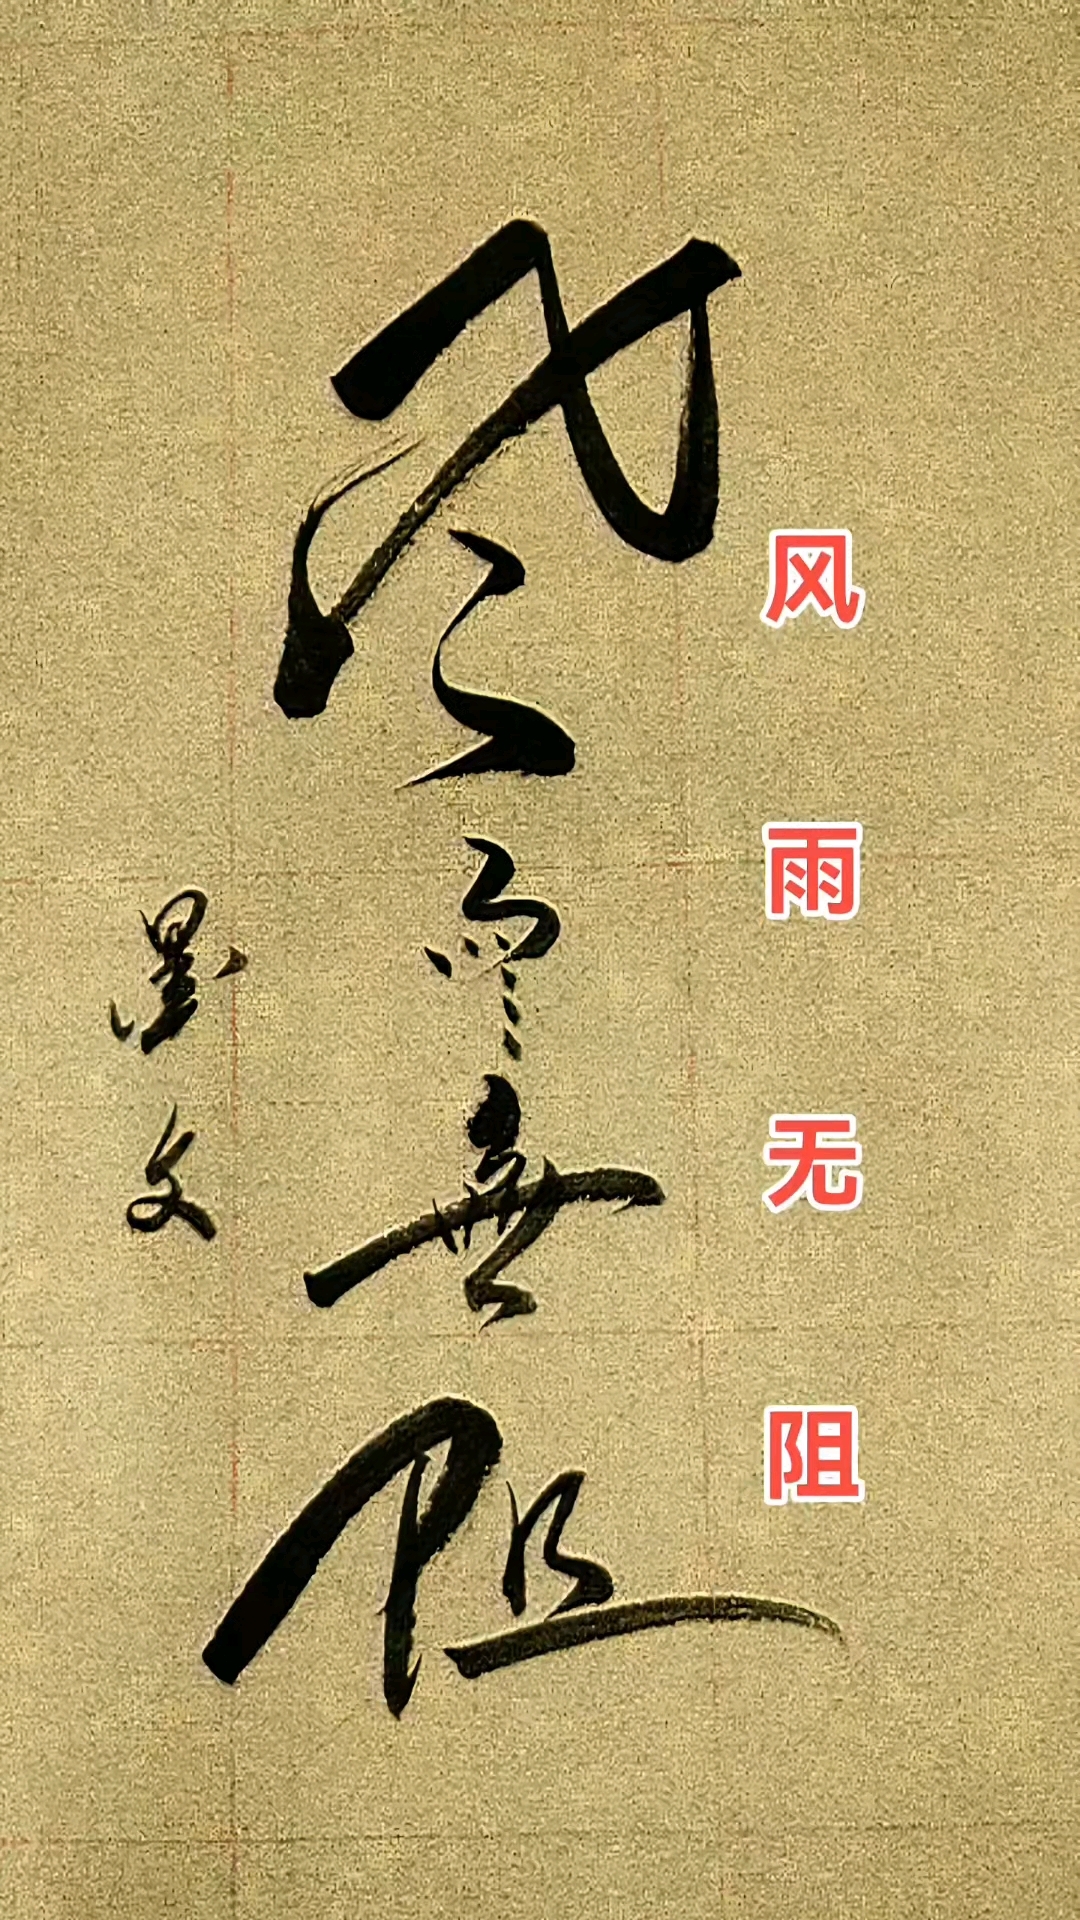 风雨无阻
风雨無阻
墨文